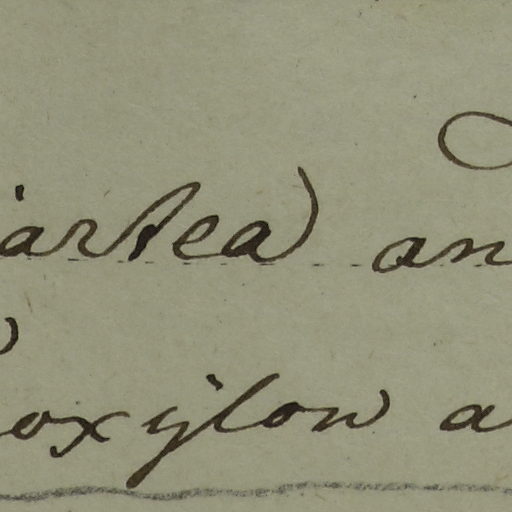 iartea) an
oxylon a